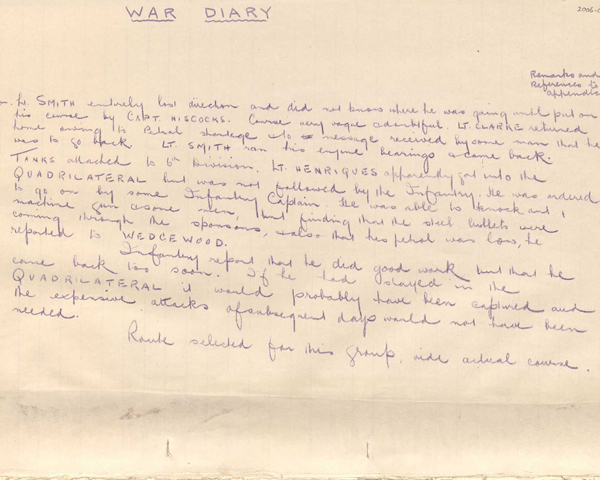 WAR DIARY
2006-
Remarks and
References to
appendices
Lt. SMITH entirely lost direction and did not know where he was going until put on
his course by CAPT. HISCOCKS. Course very vague & doubtful. LT. CLARKE returned
home owing to Petrol shortage & to message received by some man that he
was to go back. LT. SMITH ran his engine bearings & came back.
TANKS attached to 6th Division. LT. HENRIQUES apparently got into the
QUADRILATERAL but was not followed by the Infantry. He was ordered
to go on by some Infantry Captain. He was able to knock out 1
machine gun & some men, but finding that the steel bullets were
coming through the sponsons, & also that his petrol was low, he
reported to WEDGEWOOD.
Infantry report that he did good work but that he
came back too soon. If he had stayed in the
QUADRILATERAL it would probably have been captured and
the expensive attacks of subsequent days would not have been
needed.
Route selected for this group, vide actual course.